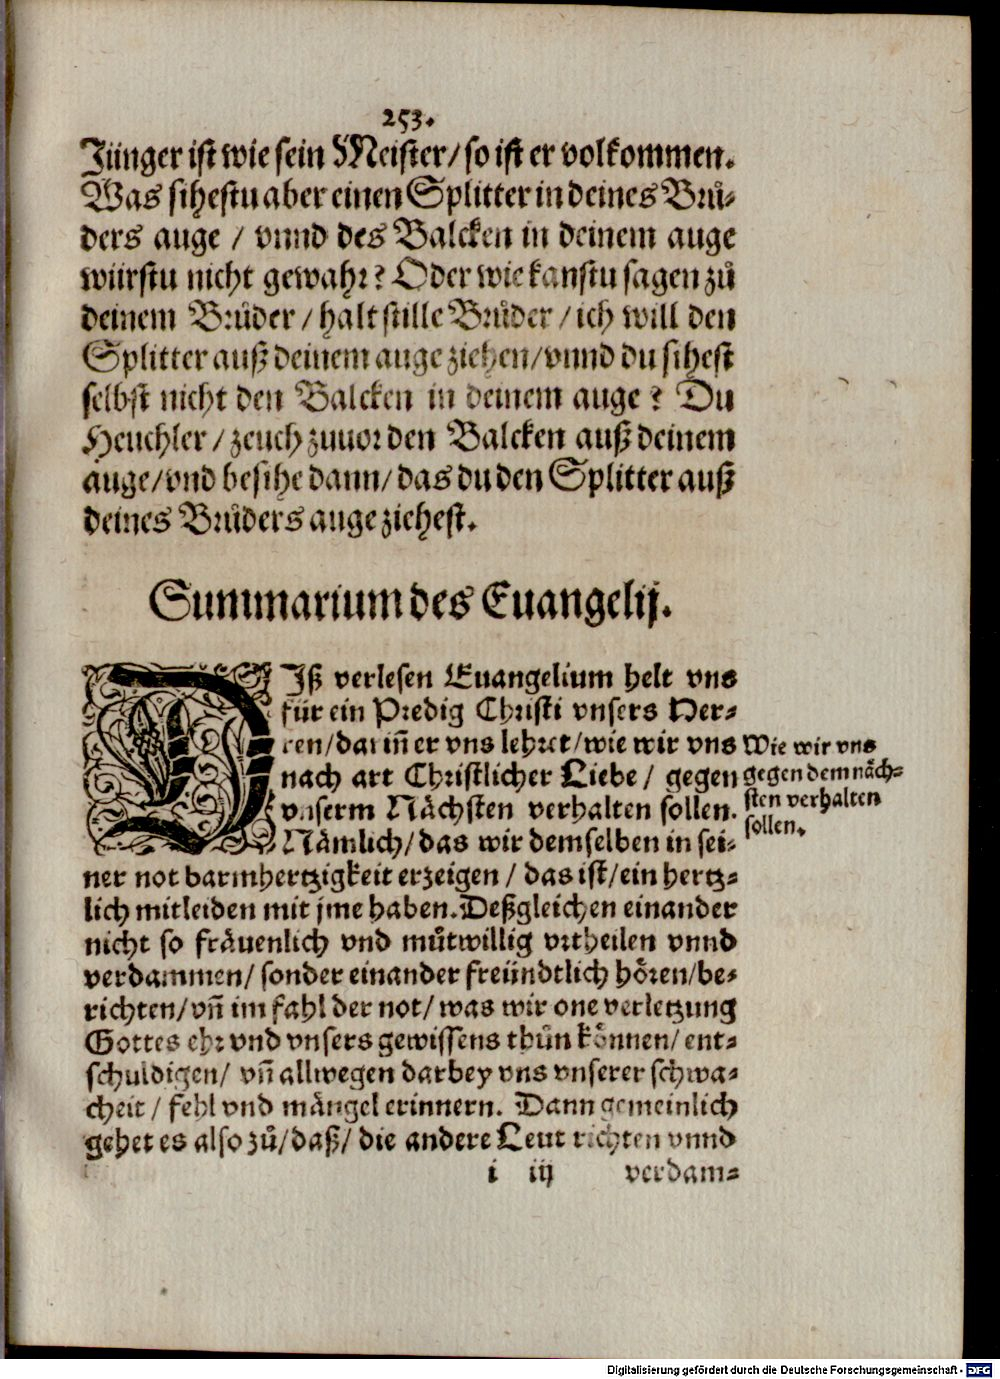 253.
Jünger ist wie sein Meister/ so ist er volkommen.
Was sihestu aber einen Splitter in deines Brů-
ders auge / vnnd des Balcken in deinem auge
würstu nicht gewahr? Oder wie kanstu sagen zů
deinem Brůder / halt stille Brůder / ich will den
Splitter auß deinem auge ziehen/ vnnd du sihest
selbst nicht den Balcken in deinem auge? Du
Heuchler / zeuch zuuor den Balcken auß deinem
auge/ vnd besihe dann/ das du den Splitter auß
deines Brůders auge ziehest.
Summarium des Euangelij.
DIß verlesen Euangelium helt vns
für ein Predig Christi vnsers Her-
ren/ dariñ er vns lehret/ wie wir vns
nach art Christlicher Liebe / gegen
vnserm Nächsten verhalten sollen.
Nämlich/ das wir demselben in sei-
ner not barmhertzigkeit erzeigen / das ist/ ein hertz-
lich mitleiden mit jme haben. Deßgleichen einander
nicht so fräuenlich vnd můtwillig vrtheilen vnnd
verdammen/ sonder einander freündtlich hören/ be-
richten/ vñ im fahl der not/ was wir one verletzung
Gottes ehr vnd vnsers gewissens thůn können/ ent-
schuldigen/ vñ allwegen darbey vns vnserer schwa-
cheit / fehl vnd mängel erinnern. Dann gemeinlich
gehet es also zů/ daß/ die andere Leut richten vnnd
i iij verdam-
Wie wir vns
gegen dem näch-
sten verhalten
sollen.
Digitalisierung gefördert durch die Deutsche Forschungsgemeinschaft - DFG